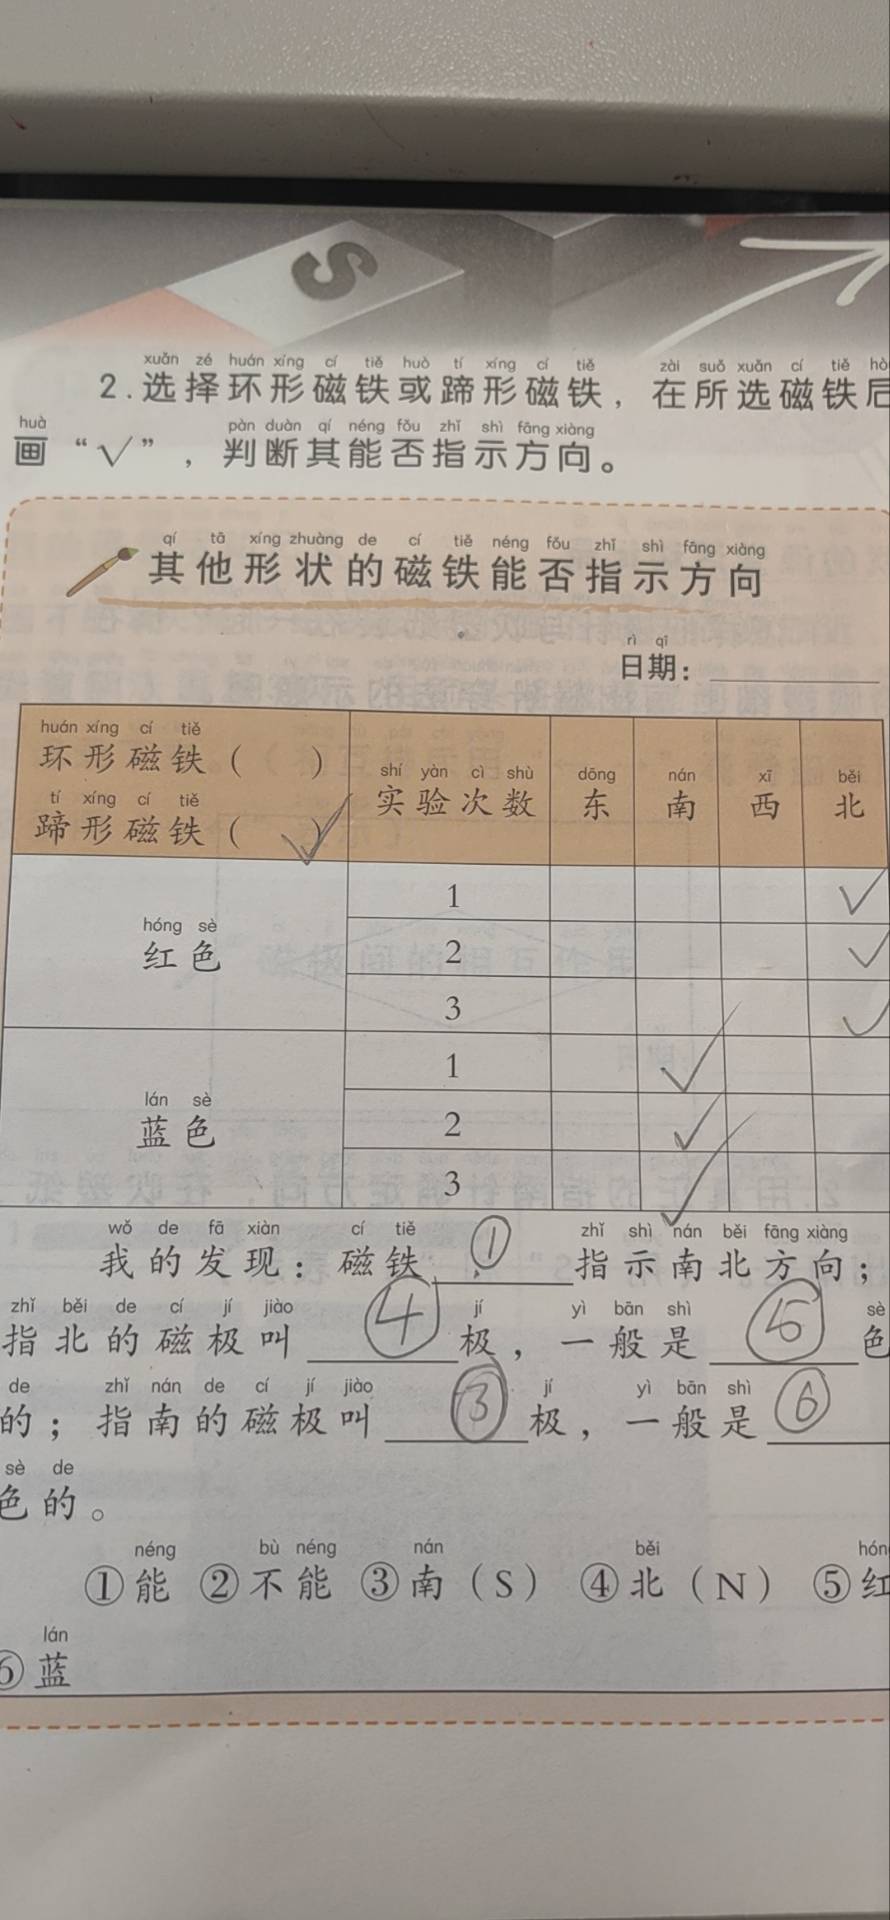 S
xuǎn zé huán xíng cí tiě huò tí xíng cí tiě zài suǒ xuǎn cí tiě hò
2.选择环形磁铁或蹄形磁铁，在所选磁铁后
huà pàn duàn qí néng fǒu zhǐ shì fāng xiàng
画“√”，判断其能否指示方向。
qí tā xíng zhuàng de cí tiě néng fǒu zhǐ shì fāng xiàng
其他形状的磁铁能否指示方向
rì qī
日期：
huán xíng cí tiě
环形磁铁（ ）
tí xíng cí tiě
蹄形磁铁（√）
shí yàn cì shù dōng nán xī běi
实验次数 东 南 西 北
hóng sè
红色
1 √
2 √
3 √
lán sè
蓝色
1 √
2 √
3 √
wǒ de fā xiàn cí tiě zhǐ shì nán běi fāng xiàng
我的发现：磁铁①指示南北方向；
zhǐ běi de cí jí jiào jí yì bān shì sè
指北的磁极叫④极，一般是⑤色
de zhǐ nán de cí jí jiào jí yì bān shì
的；指南的磁极叫③极，一般是⑥
sè de
色的。
néng bù néng nán běi hón
①能 ②不能 ③南（S） ④北（N） ⑤红
lán
⑥蓝